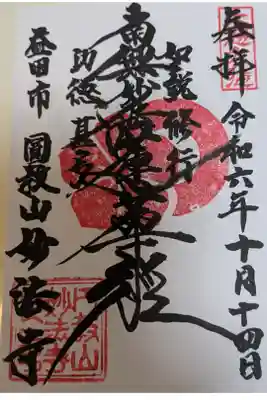 奉拝
令和六年十月十四日
如説修行
南無妙法蓮華経
功徳甚多
益田市
山妙法寺